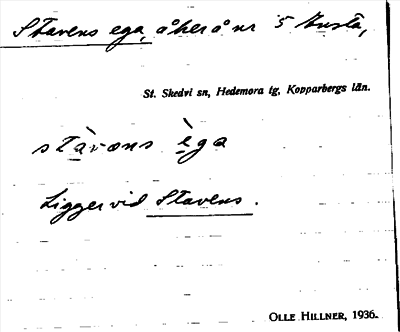 Stavens ega, åker å nr 5 Kusta,
St. Skedvi sn, Hedemora tg, Kopparbergs län.
stàvəns èga
Ligger vid Stavens.
OLLE HILLNER, 1936.